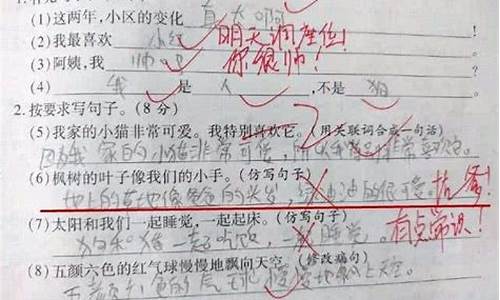 (1)这两年,小区的变化 真大啊
(2)我最喜欢 小红 明天调座位!
(3)阿姨,我 帅吧 你很帅!
(4) 我 是 人 ,不是 狗
2.按要求写句子。(8 分)
(5)我家的小猫非常可爱。我特别喜欢它。(用关联词合成一句话)
因为我家的小猫非常可爱,所以我非常喜欢它。
(6)枫树的叶子像我们的小手。(仿写句子)
地上的草地像爸爸的头发,绿油油的很可爱。抗争!
(7)太阳和我们一起睡觉,一起起床。(仿写句子)
狗和猪一起吃饭,一起睡觉。 有点常识!
(8)五颜六色的红气球慢慢地飘向天空。(修改病句)
五颜六色的气球慢慢地飘上天空。